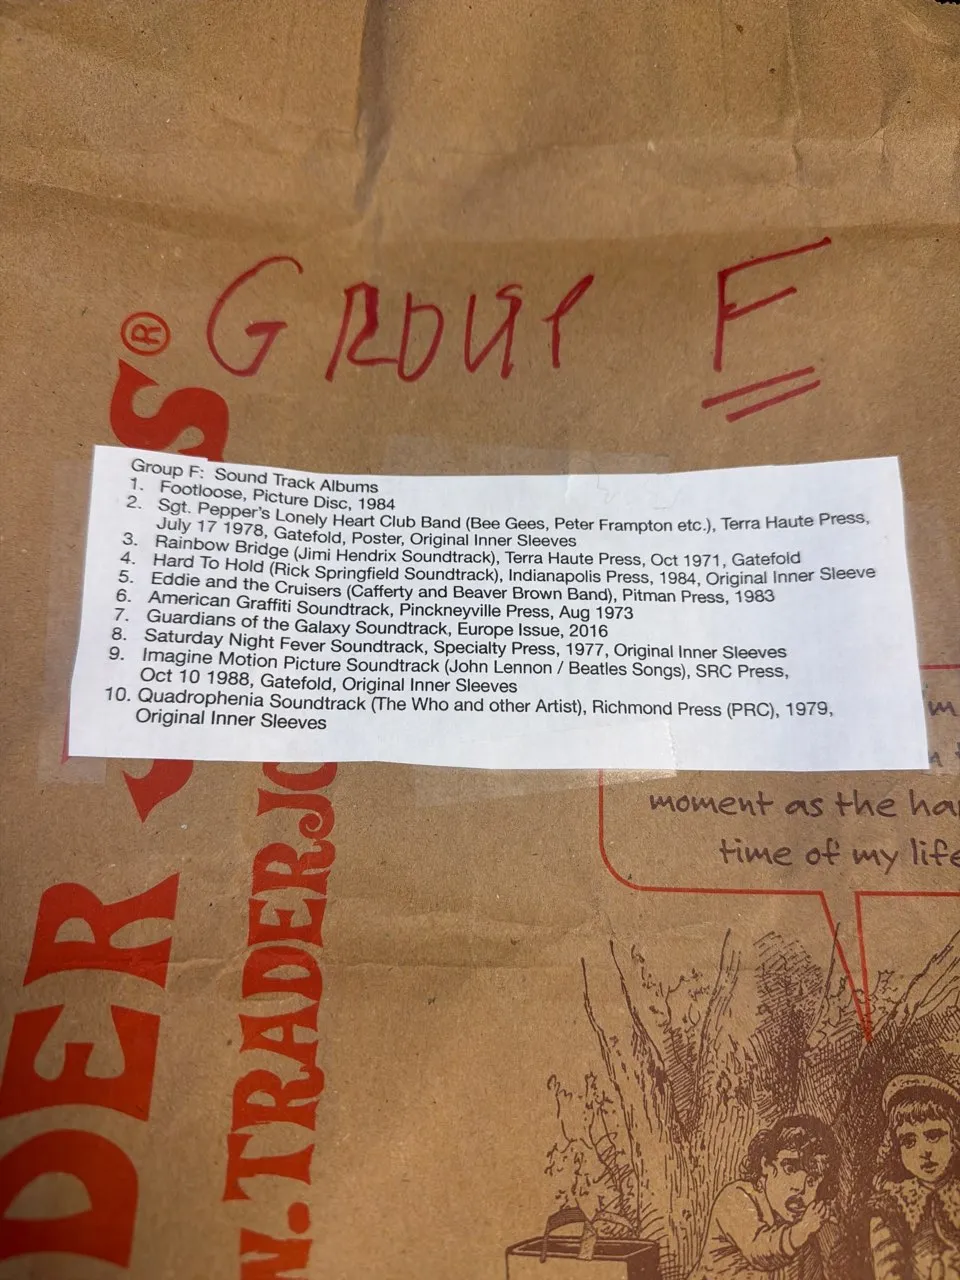 GROUP F
Group F: Sound Track Albums
1. Footloose, Picture Disc, 1984
2. Sgt. Pepper's Lonely Heart Club Band (Bee Gees, Peter Frampton etc.), Terra Haute Press,
July 17 1978, Gatefold, Poster, Original Inner Sleeves
3. Rainbow Bridge (Jimi Hendrix Soundtrack), Terra Haute Press, Oct 1971, Gatefold
4. Hard To Hold (Rick Springfield Soundtrack), Indianapolis Press, 1984, Original Inner Sleeve
5. Eddie and the Cruisers (Cafferty and Beaver Brown Band), Pitman Press, 1983
6. American Graffiti Soundtrack, Pinckneyville Press, Aug 1973
7. Guardians of the Galaxy Soundtrack, Europe Issue, 2016
8. Saturday Night Fever Soundtrack, Specialty Press, 1977, Original Inner Sleeves
9. Imagine Motion Picture Soundtrack (John Lennon / Beatles Songs), SRC Press,
Oct 10 1988, Gatefold, Original Inner Sleeves
10. Quadrophenia Soundtrack (The Who and other Artist), Richmond Press (PRC), 1979,
Original Inner Sleeves
moment as the
time of my life
DER S®
W.TRADERJO